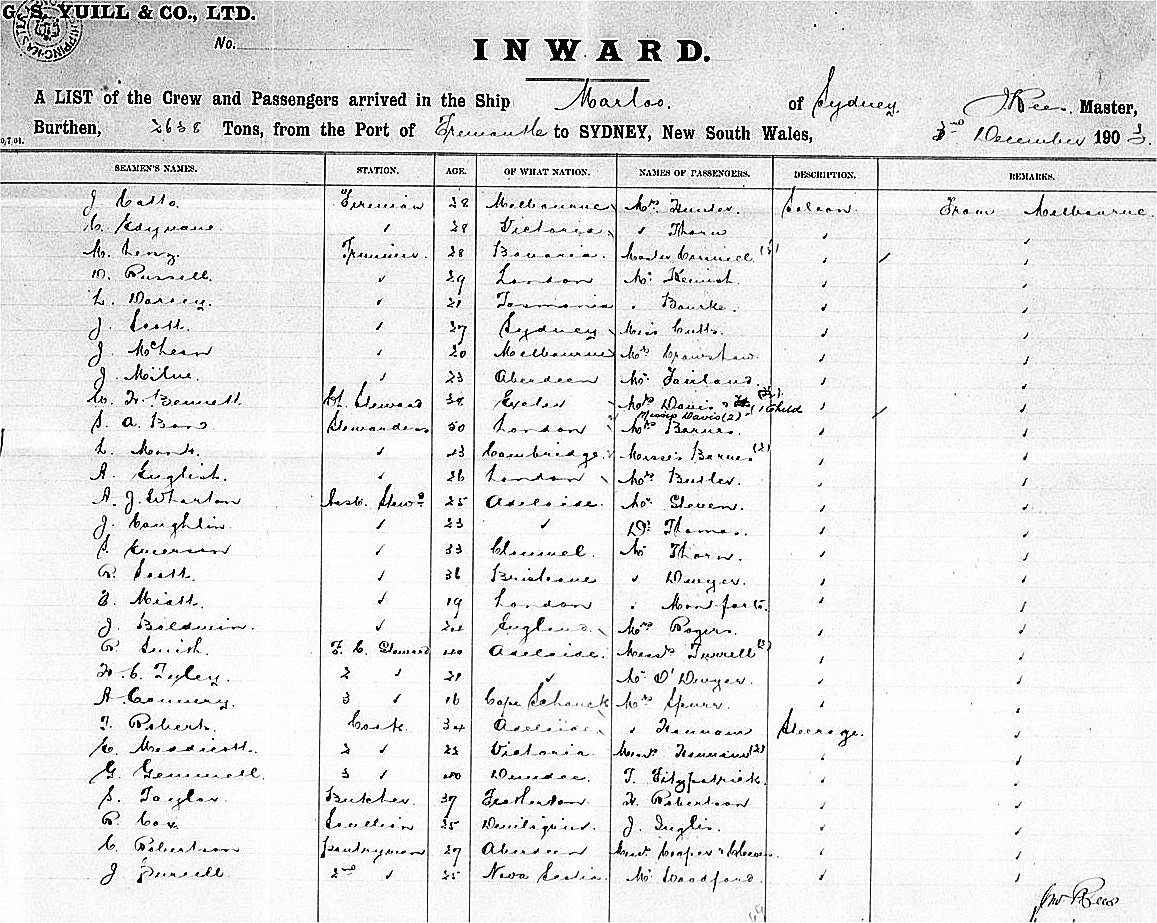 G. S. YUILL & CO., LTD.
SHIPPING MASTER
No.
INWARD.
A LIST of the Crew and Passengers arrived in the Ship Marloo. of Sydney. J Rees. Master,
Burthen, 2638 Tons, from the Port of Fremantle to SYDNEY, New South Wales, December 1903.
SEAMEN'S NAMES. STATION. AGE. OF WHAT NATION. NAMES OF PASSENGERS. DESCRIPTION. REMARKS.
J Fireman 28 Melbourne Mrs Hunter. Saloon. From Melbourne.
C. " 28 Victoria " Thorn " "
M. Trimmer. 28 Bavaria. Master (3) " "
D. Russell. " 29 London Mr " "
L. Dorsey. " 21 Tasmania " Bourke. " "
J. Scott. " 37 Sydney Miss Cutts. " "
J. McLean " 20 Melbourne Mrs Crawshaw. " "
J. Milne. " 23 Aberdeen Mr Fairland. " "
W. H. Bennett Ch Steward 38 Exeter Mrs Davis & 1 Child " "
Misses Davis (2)
S. A. Stewardess 50 London Mrs Barnes. " "
L. " Cambridge. Misses Barnes (2) " "
A. English. " 26 London Mrs Butler. " "
A. J. Wharton Asst. Stewd 25 Adelaide. Mr Steven. " "
J. Coughlin. " 23 " Dr Thomas. " "
S. " 33 Clonmel. Mr Thorn. " "
R. Scott. " 36 Brisbane " Dwyer. " "
E. Miatt. " 19 London " Montforts. " "
J. Baldwin. " England. Mrs Rogers. " "
R. Smith. F. C. Steward 40 Adelaide. Messrs Turrell (2) " "
H. C. Tuley. 2 " 21 " Mr O'Dwyer. " "
A. Connery. 3 " 16 Cape Schanck Mrs Spurr. " "
T. Robert. Cook. 34 Adelaide. " Hannam Steerage. "
E. 2 " 22 Victoria. (2) " "
G. Gemmell. 3 " 40 Dundee. T. Fitzpatrick. " "
S. Taylor. Butcher. 37 H. Robertson " "
R. Cox. Scullion 25 Deniliquin. J. Inglis. " "
C. Robertson Pantryman 27 Aberdeen Messrs Cooper & " "
J Pursell. 2nd " 25 Nova Scotia. Mr Woodford. " "
Jno Rees